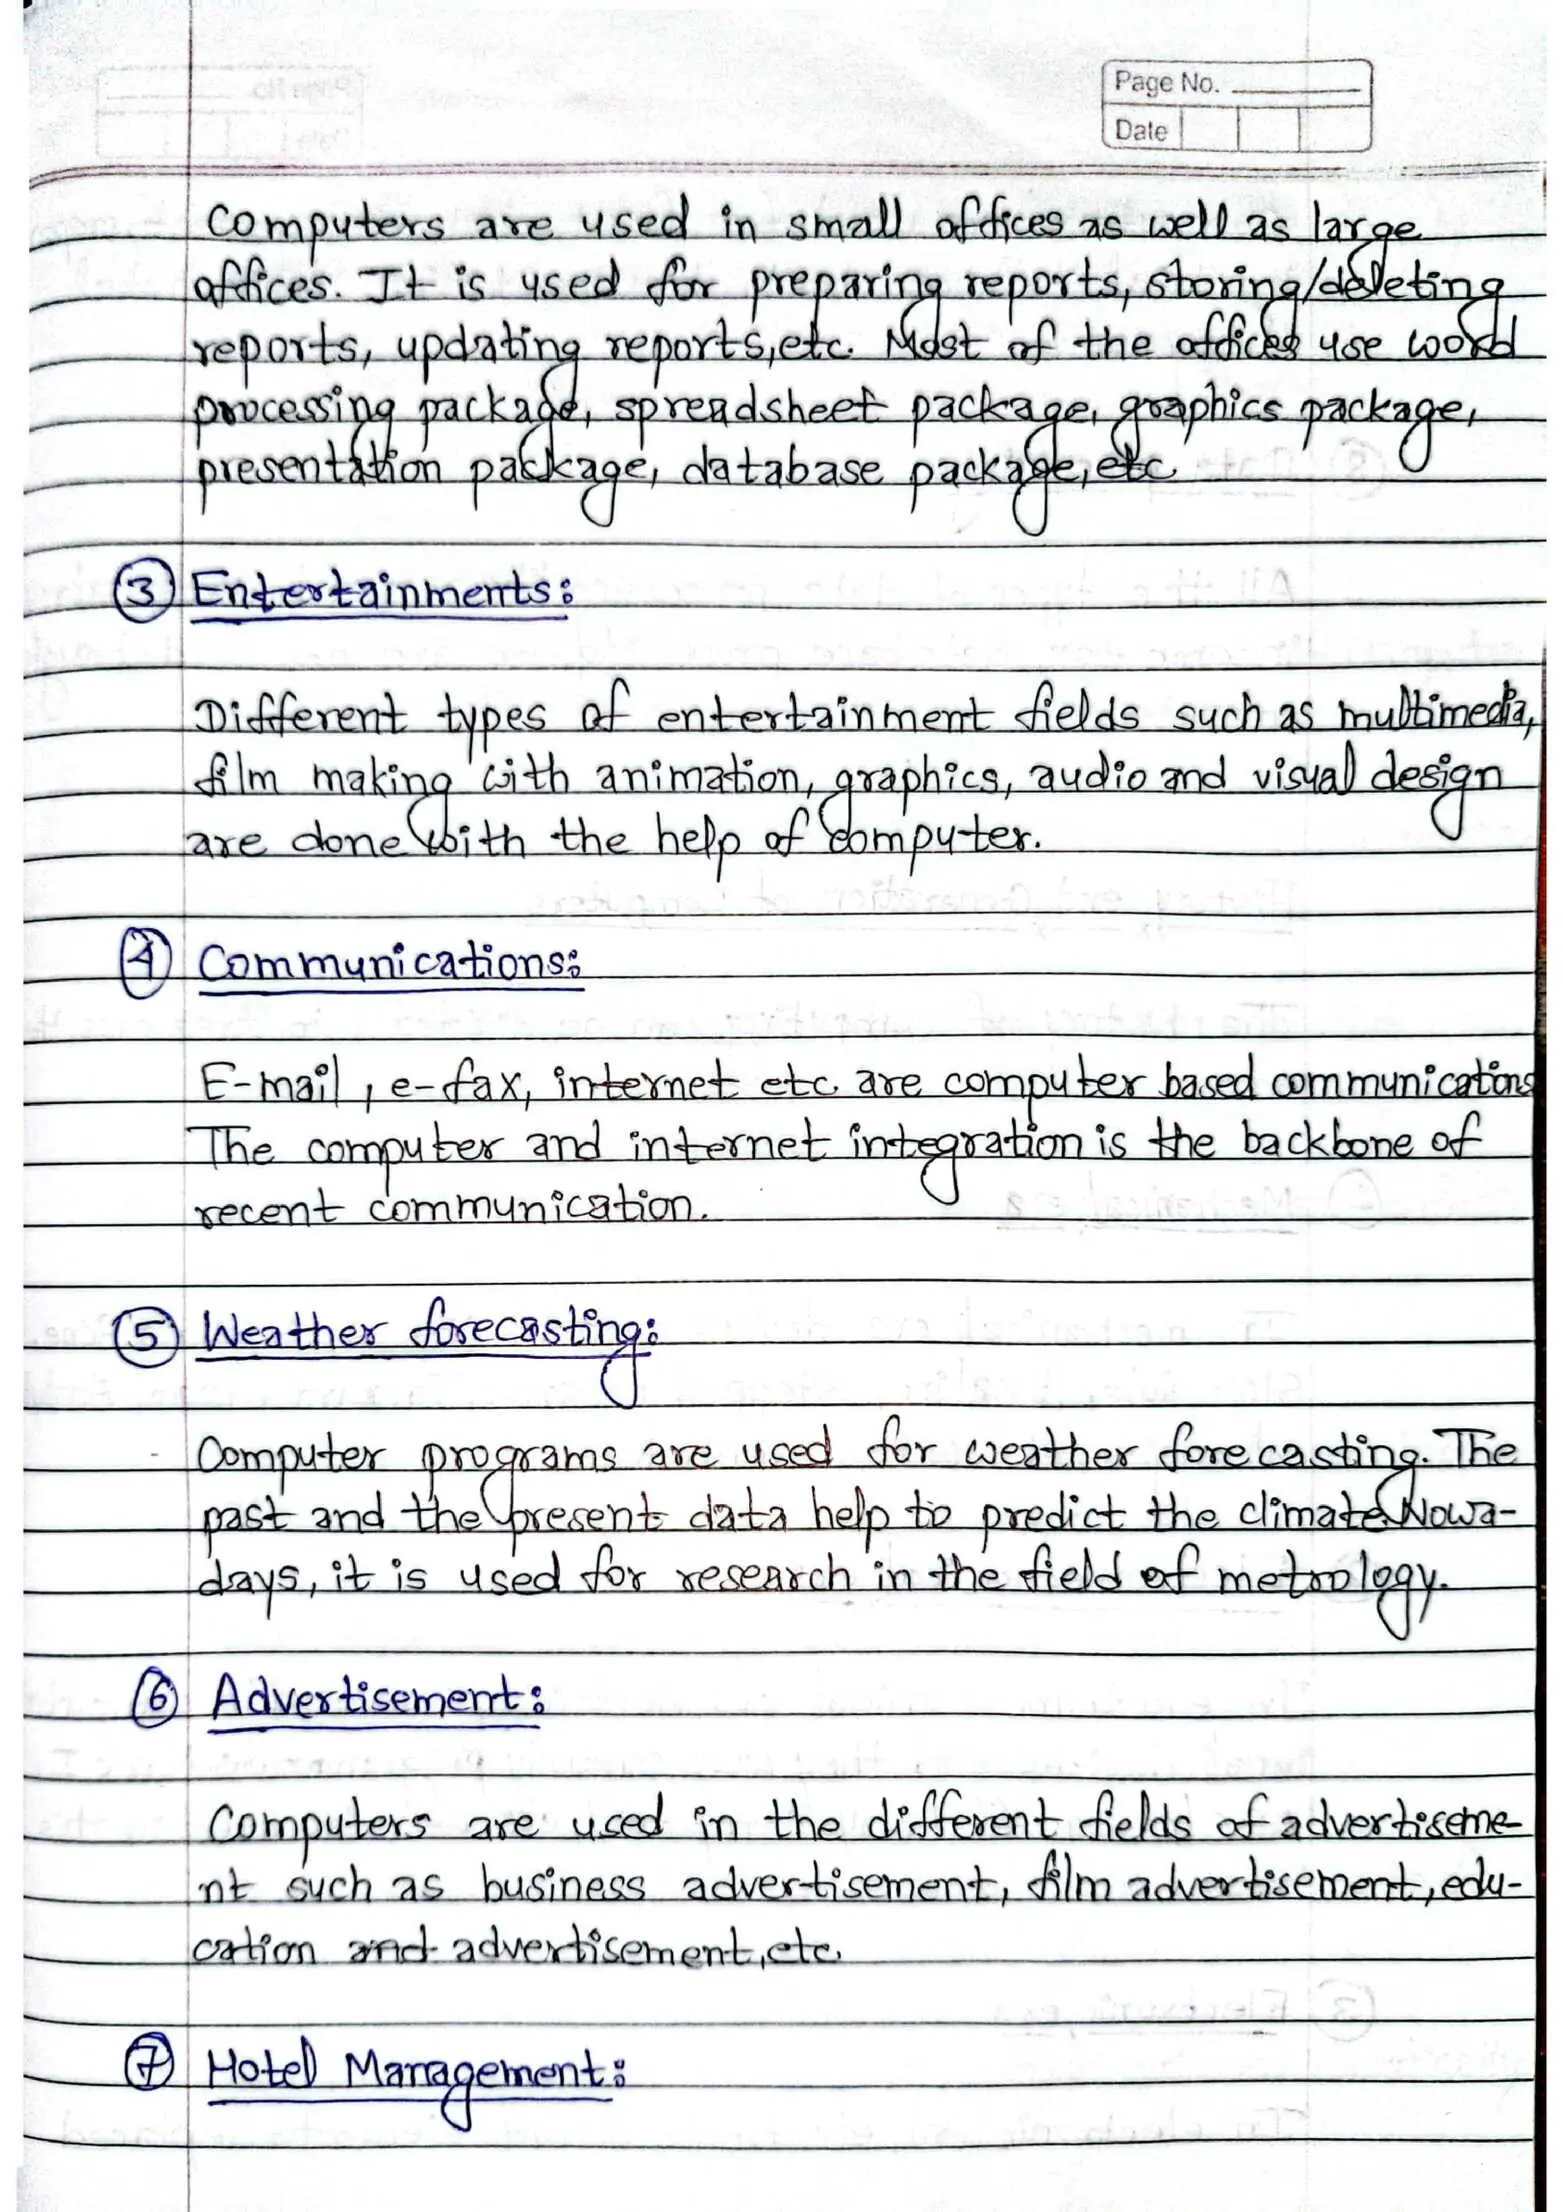 Page No.
Date
Computers are used in small offices as well as large
offices. It is used for preparing reports, storing/deleting
reports, updating reports, etc. Most of the offices use word
processing package, spreadsheet package, graphics package,
presentation package, database package, etc
③ Entertainments:
Different types of entertainment fields such as multimedia,
film making with animation, graphics, audio and visual design
are done with the help of computer.
④ Communications:
E-mail, e-fax, internet etc are computer based communications
The computer and internet integration is the backbone of
recent communication.
⑤ Weather forecasting:
Computer programs are used for weather forecasting. The
past and the present data help to predict the climate. Nowa-
days, it is used for research in the field of metrology.
⑥ Advertisement:
Computers are used in the different fields of advertiseme-
nt such as business advertisement, film advertisement, edu-
cation and advertisement, etc.
⑦ Hotel Management: